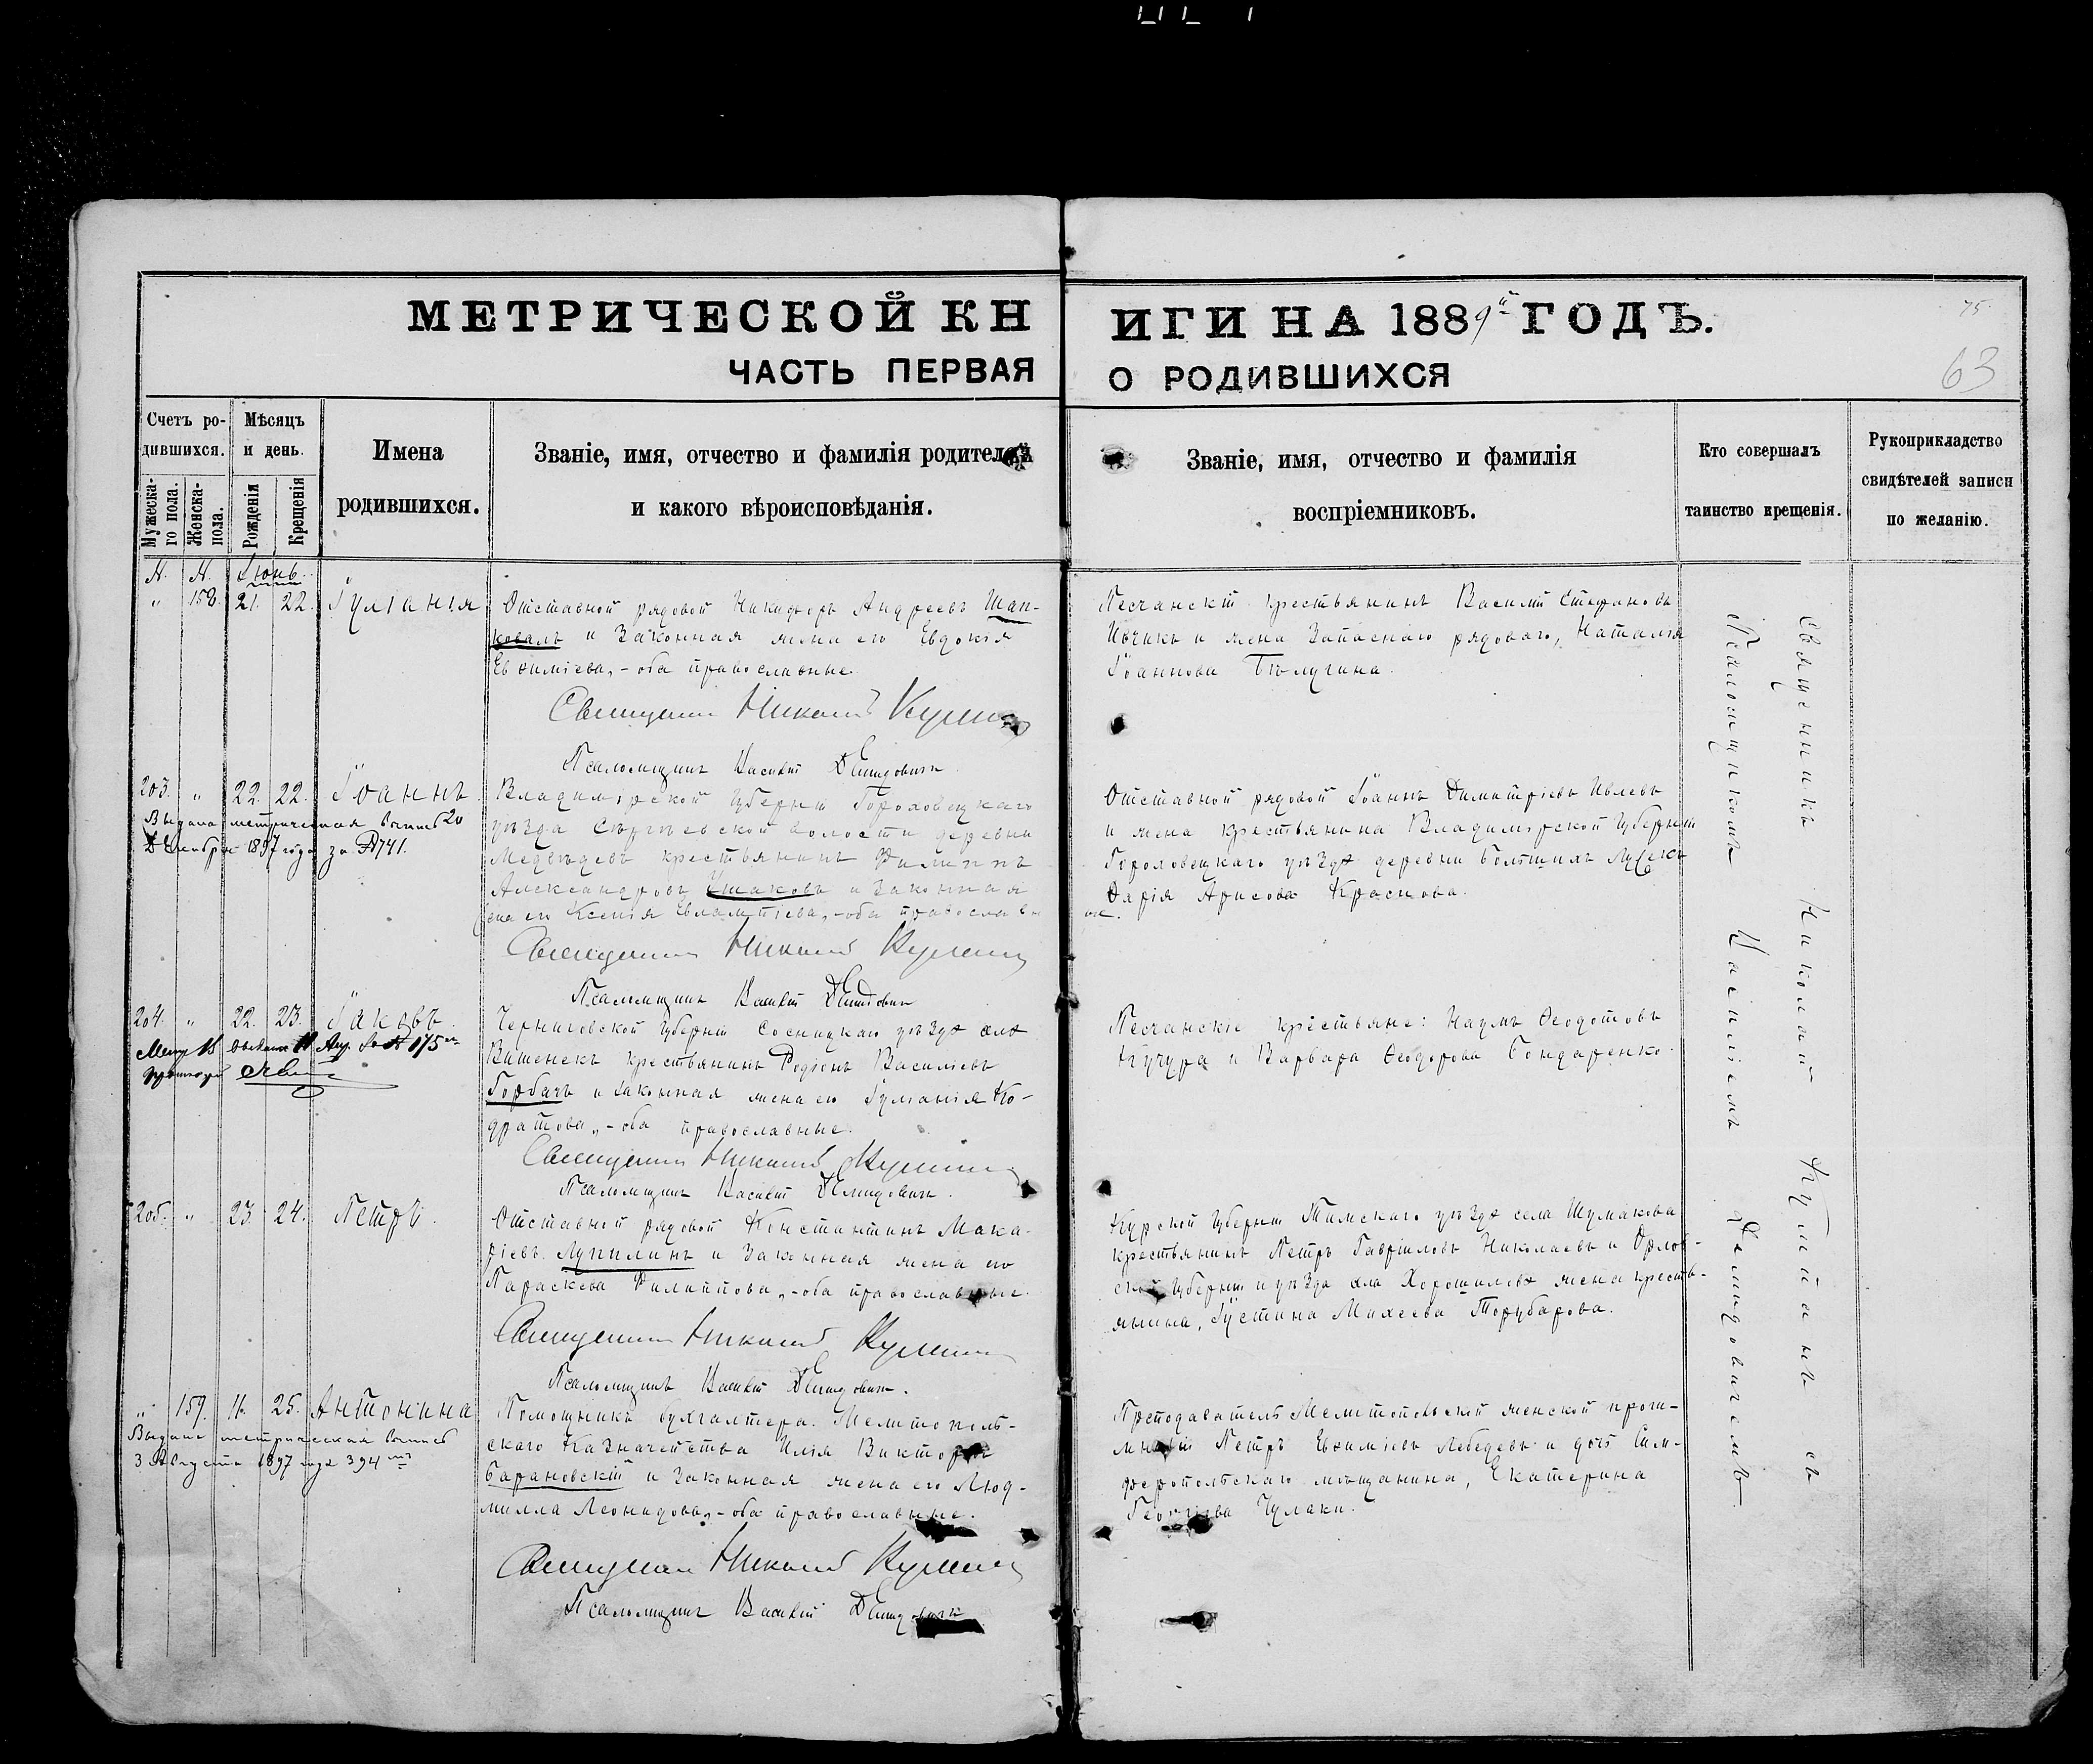 МЕТРИЧЕСКОЙ КНИГИ НА 1889й ГОДЪ.
ЧАСТЬ ПЕРВАЯ О РОДИВШИХСЯ
75
63
Счетъ ро-
дившихся.
Мужеска-
го пола.
Женска-
пола.
Мѣсяцъ
и день.
Рожденія
Крещенія
Имена
родившихся.
Званіе, имя, отчество и фамилія родителей
и какого вѣроисповѣданія.
Званіе, имя, отчество и фамилія
воспріемниковъ.
Кто совершалъ
таинство крещенія.
Рукоприкладство
свидѣтелей записи
по желанію.
Іюнь.
" 158. 21. 22. Іуліанія
Отставной рядовой Никифоръ Андреевъ Шап-
ковалъ и законная жена его Евдокія
Евѳиміева, - оба православные.
Священникъ Николай
Псаломщикъ Василій Демидовичъ
Песчанскій крестьянинъ Василій Стефановъ
и жена запаснаго рядоваго, Наталія
Іоаннова Бѣлугина.
203. " 22. 22. Іоаннъ
Выдана метрическая выпись 20
Декабря 1897 года за № 741.
Владимірской губерніи Гороховецкаго
уѣзда Сергѣевской волости деревни
Медвѣдевъ крестьянинъ Филиппъ
Александровъ Ушаковъ и законная
жена его Ксенія Евлампіева, - оба православн
ые.
Священникъ Николай
Псаломщикъ Василій Демидовичъ
Отставной рядовой Іоаннъ Димитріевъ Ивлевъ
и жена крестьянина Владимірской губерніи
Гороховецкаго уѣзда деревни Большихъ Лужекъ
Дарія Краснова.
204. " 22. 23. Іаковъ
Черниговской губерніи Сосницкаго уѣзда села
Вишенекъ крестьянинъ Родіонъ Василіевъ
Горбачъ и законная жена его Іуліанія Ко-
дратова, - оба православные.
Священникъ Николай
Псаломщикъ Василій Демидовичъ.
Песчанскіе крестьяне: Наумъ Ѳеодотовъ
Кучура и Варвара Ѳеодорова Бондаренко.
205. " 23. 24. Петръ.
Отставной рядовой Константинъ Мака-
ріевъ Лупилинъ и законная жена его
Параскева Филиппова, - оба православные.
Священникъ Николай
Псаломщикъ Василій Демидовичъ.
Курской губерніи Тимскаго уѣзда села Шумакова
крестьянинъ Петръ Гавріиловъ Николаевъ и Орлов-
ской губерніи и уѣзда села Хорошилова жена кресть-
янина, Іустина Михеева Торубарова.
" 159. 11. 25. Антонина
Выдана метрическая выпись
3 Августа 1897 года 394
Помощникъ бухгалтера Мелитополь-
скаго Казначейства Илія Викторовъ
Барановскій и законная жена его Люд-
милла Леонидова, - оба православные.
Священникъ Николай
Псаломщикъ Василій Демидовичъ
Преподаватель Мелитопольской женской проги-
мназіи Петръ Евѳиміевъ Лебедевъ и дочь Сим-
феропольскаго мѣщанина, Екатерина
Георгіева Чулаки.
Священникъ Николай Купчановъ съ
Псаломщикомъ Василіемъ Демидовичемъ.